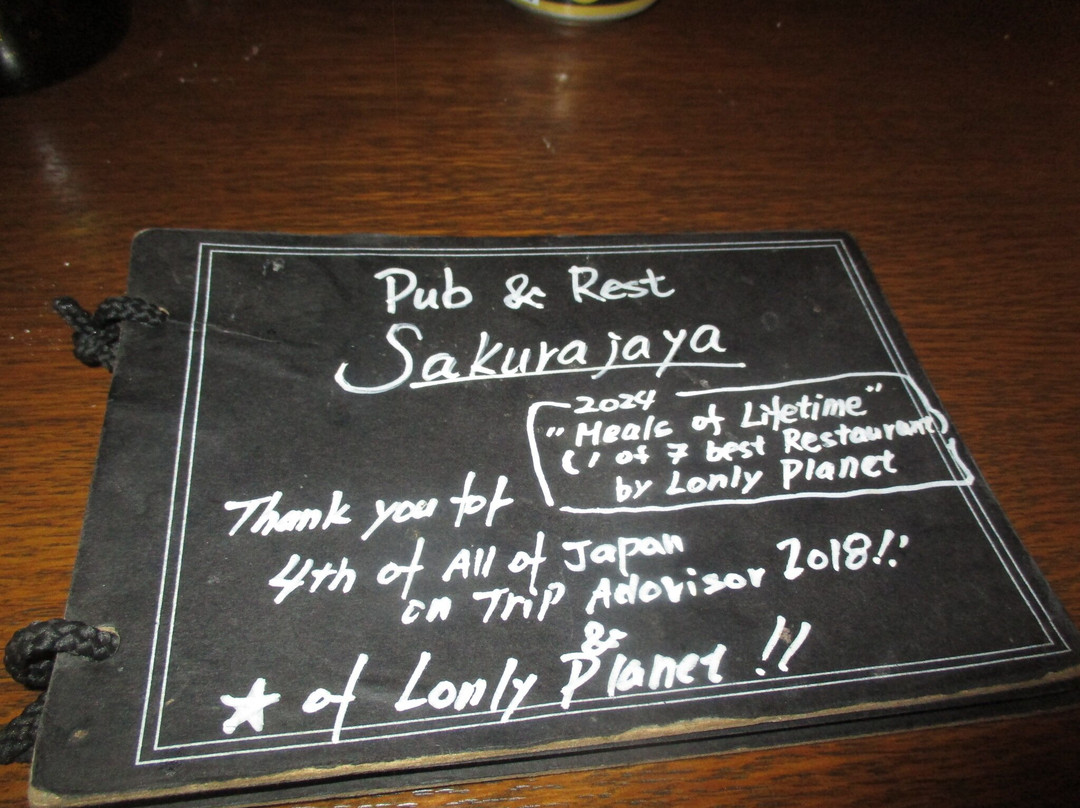 Pub & Rest
Sakurajaya
2024
"Meals of Lifetime"
(1 of 7 best Restaurant)
by Lonly Planet
Thank you for
4th of All of Japan
on Trip Adovisor 2018!!
&
★ of Lonly Planet !!